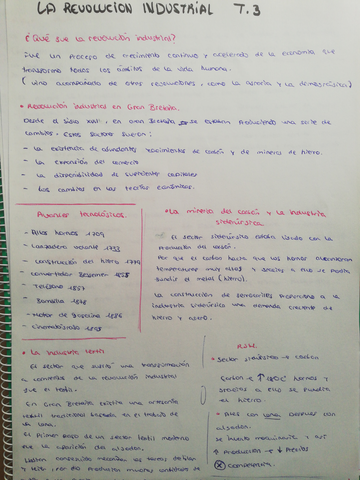 LA REVOLUCION INDUSTRIAL T.3
¿Qué fue la revolución industrial?
Fue un proceso de crecimiento continuo y acelerado de la economía que
transformó todos los ámbitos de la vida humana.
(vino acompañada de otras revoluciones, como la agraria y la demográfica)
• Revolución industrial en Gran Bretaña.
Desde el siglo XVIII, en Gran Bretaña se estaban produciendo una serie de
cambios. Estos factores fueron:
- La existencia de abundantes yacimientos de carbón y de mineral de hierro.
- La expansión del comercio
- La disponibilidad de suficientes capitales
- Los cambios en las teorías económicas.
Avances tecnológicos.
- Altos hornos 1709
- Lanzadera volante 1733
- construcción del hierro 1779
- convertidor Bessemer
- Teléfono
- Bombilla
- Motor de gasolina 1886
- Cinematógrafo
• La minería del carbón y la industria
siderúrgica
El sector siderúrgico estaba ligado con la
producción del carbón.
Por que el carbón hacía que los hornos alcanzaran
temperaturas muy altas y gracias a ello se podía
fundir el metal (hierro).
La construcción de ferrocarriles proporcionó a la
industria siderúrgica una demanda creciente de
hierro y acero.
• La industria textil
El sector que sufrió una transformación
a comienzos de la revolución industrial
fue el textil.
En Gran Bretaña existía una artesanía
textil tradicional basada en el trabajo de
la lana.
El primer paso de un sector textil moderno
fue la aparición del algodón.
• Sector siderúrgico → carbón
Carbón ↑ hornos y
gracias a ello se fundía
el hierro.
• Antes con lana, después con
algodón.
Se inventó maquinaria y así
↑ producción → ↓ precios